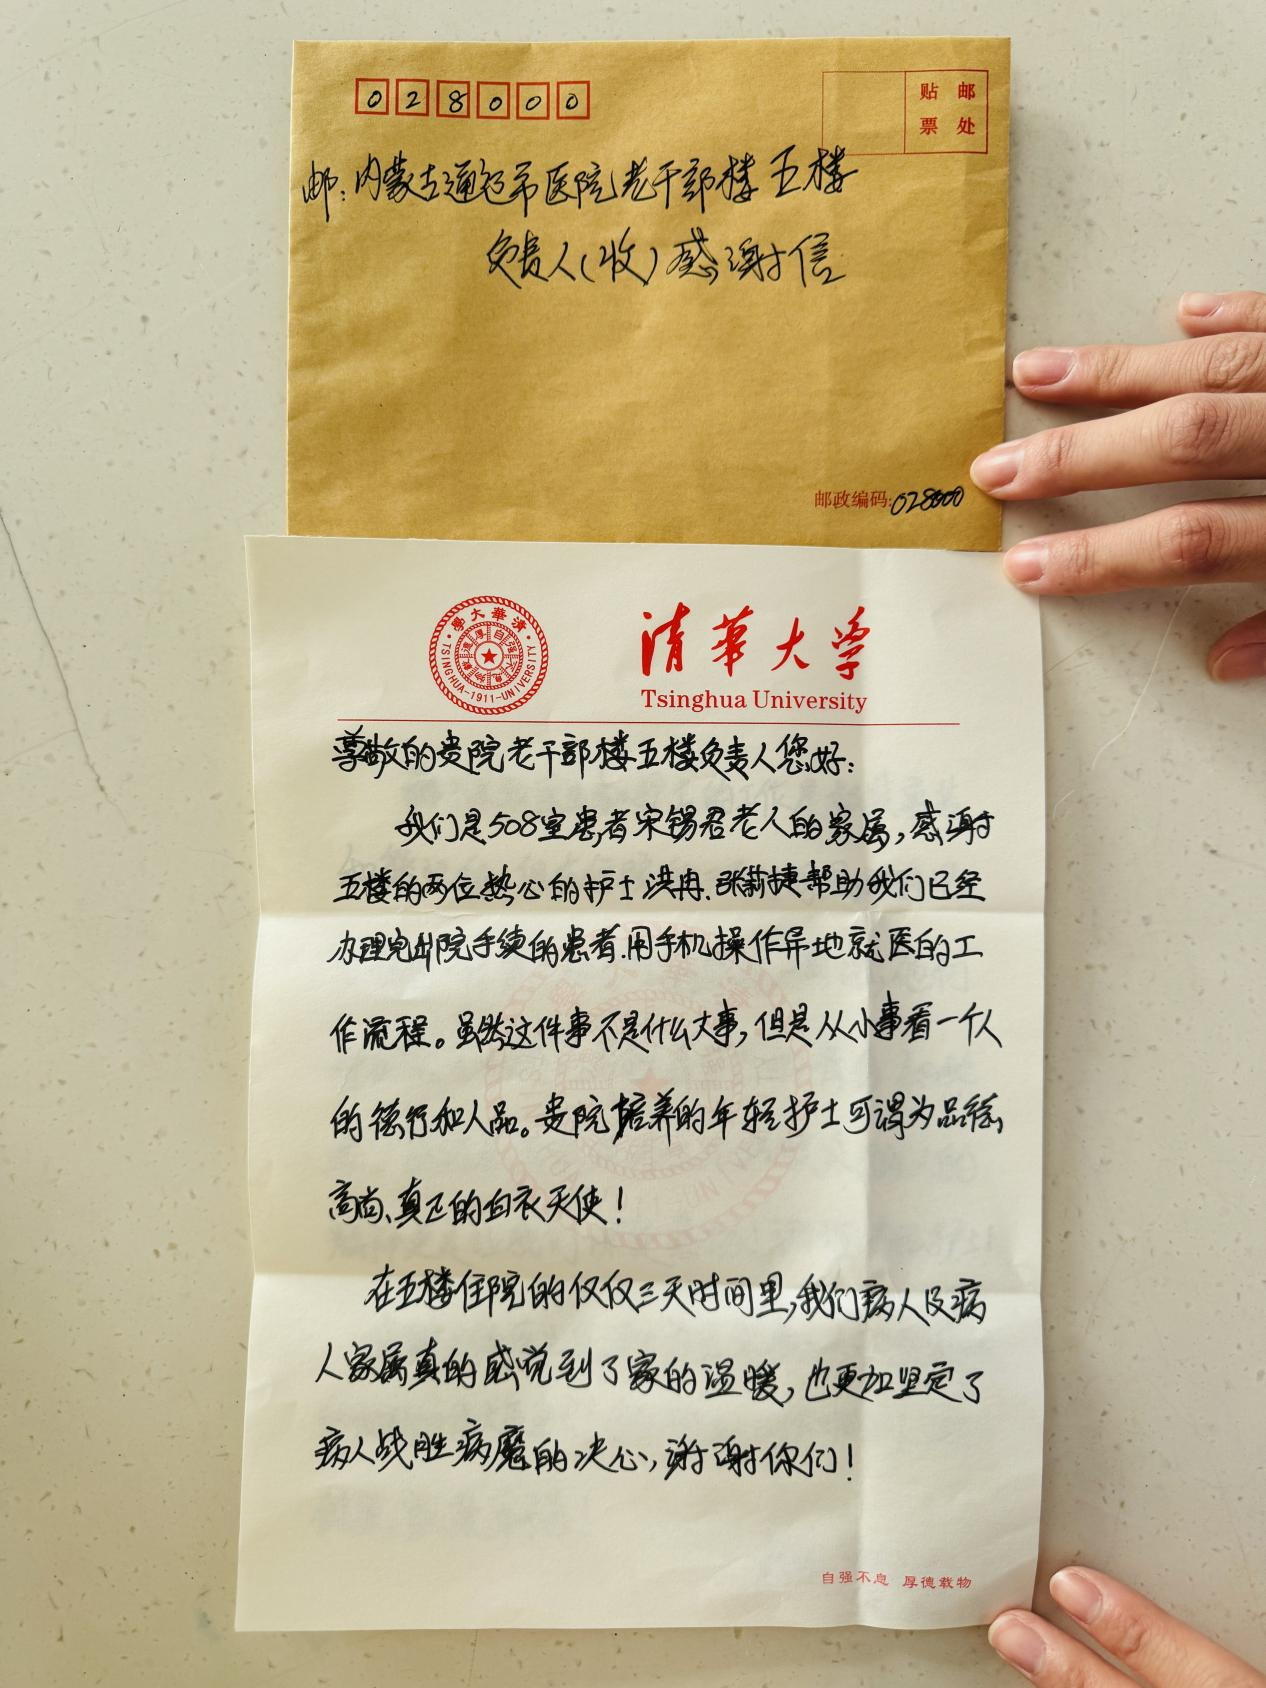 028000
贴邮
票处
邮:内蒙古通辽市医院老干部楼五楼
负责人(收)感谢信
邮政编码:028000
清華大學
TSINGHUA-1911-UNIVERSITY
自强不息
厚德载物
清華大学
Tsinghua University
尊敬的贵院老干部楼五楼负责人您好:
我们是508室患者宋锡君老人的家属,感谢
五楼的两位热心的护士洪冉、张薪捷帮助我们已经
办理完出院手续的患者.用手机操作异地就医的工
作流程。虽然这件事不是什么大事,但是从小事看一个人
的德行和人品。贵院培养的年轻护士可谓为品德
高尚、真正的白衣天使!
在五楼住院的仅仅三天时间里,我们病人及病
人家属真的感觉到了家的温暖,也更加坚定了
病人战胜病魔的决心,谢谢你们!
自强不息 厚德载物